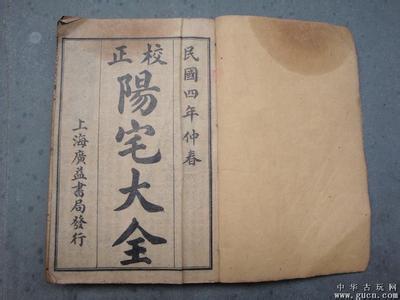 民國四年仲春
校正
陽宅大全
上海廣益書局發行
中华古玩网
www.gucn.com